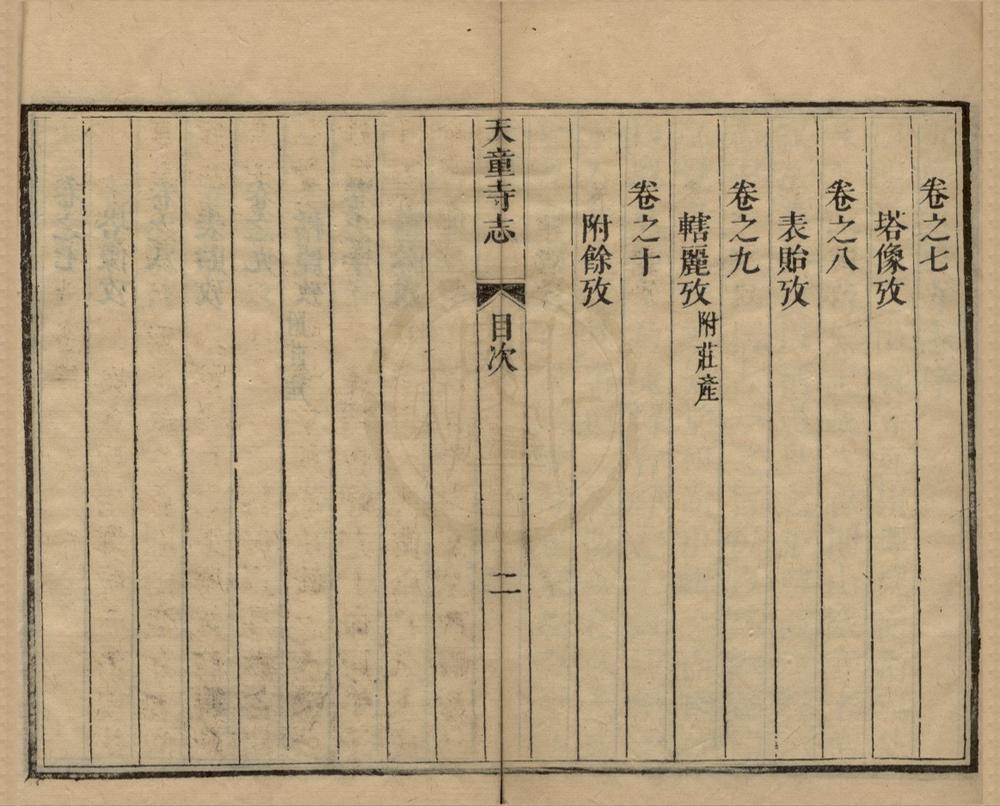 卷之七
塔像攷
卷之八
表貽攷
卷之九
轄麗攷附莊產
卷之十
附餘攷
天童寺志 目次 二